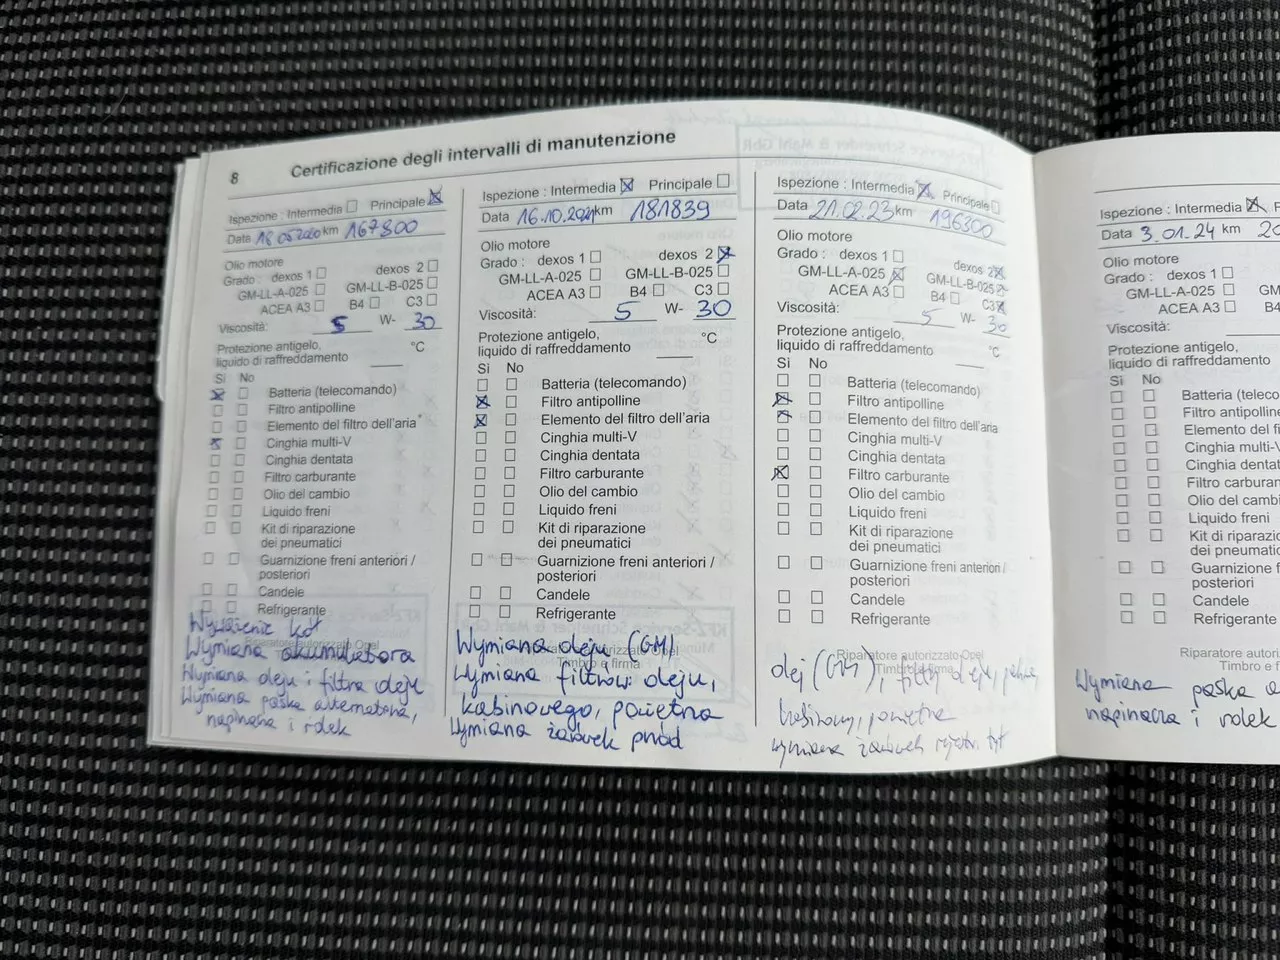 8 Certificazione degli intervalli di manutenzione
Ispezione : Intermedia Principale
Data 18 05 2020 km 167800
Olio motore
Grado : dexos 1 dexos 2
GM-LL-A-025 GM-LL-B-025
ACEA A3 B4 C3
Viscosità: 5 W- 30
Protezione antigelo,
liquido di raffreddamento °C
Si No
Batteria (telecomando)
Filtro antipolline
Elemento del filtro dell'aria
Cinghia multi-V
Cinghia dentata
Filtro carburante
Olio del cambio
Liquido freni
Kit di riparazione
dei pneumatici
Guarnizione freni anteriori /
posteriori
Candele
Refrigerante
Riparatore autorizzato Opel
Wyważenie kół
Wymiana akumulatora
Wymiana oleju i filtra oleju
Wymiana paska alternatora,
napinacza i rolek
Ispezione : Intermedia Principale
Data 16.10.2021 km 181839
Olio motore
Grado : dexos 1 dexos 2
GM-LL-A-025 GM-LL-B-025
ACEA A3 B4 C3
Viscosità: 5 W- 30
Protezione antigelo,
liquido di raffreddamento °C
Si No
Batteria (telecomando)
Filtro antipolline
Elemento del filtro dell'aria
Cinghia multi-V
Cinghia dentata
Filtro carburante
Olio del cambio
Liquido freni
Kit di riparazione
dei pneumatici
Guarnizione freni anteriori /
posteriori
Candele
Refrigerante
Riparatore autorizzato Opel
Timbro e firma
Wymiana oleju (GM)
Wymiana filtrów oleju,
kabinowego, powietrza
Wymiana żarówek przód
Ispezione : Intermedia Principale
Data 21.02.23 km 196300
Olio motore
Grado : dexos 1 dexos 2
GM-LL-A-025 GM-LL-B-025
ACEA A3 B4 C3
Viscosità: 5 W- 30
Protezione antigelo,
liquido di raffreddamento °C
Si No
Batteria (telecomando)
Filtro antipolline
Elemento del filtro dell'aria
Cinghia multi-V
Cinghia dentata
Filtro carburante
Olio del cambio
Liquido freni
Kit di riparazione
dei pneumatici
Guarnizione freni anteriori /
posteriori
Candele
Refrigerante
Riparatore autorizzato Opel
Timbro e firma
olej (GM), filtry oleju,
kabinowy, powietrza
wymiana żarówek rejestr. tył
Ispezione : Intermedia P
Data 3.01.24 km 20
Olio motore
Grado : dexos 1
GM-LL-A-025 GM
ACEA A3 B
Viscosità:
Protezione antigelo,
liquido di raffreddamento
Si No
Batteria (teleco
Filtro antipolline
Elemento del fi
Cinghia multi-V
Cinghia dentata
Filtro carburan
Olio del cambio
Liquido freni
Kit di riparazio
dei pneumatici
Guarnizione fr
posteriori
Candele
Refrigerante
Riparatore autori
Timbro e f
Wymiana paska a
napinacza i rolek